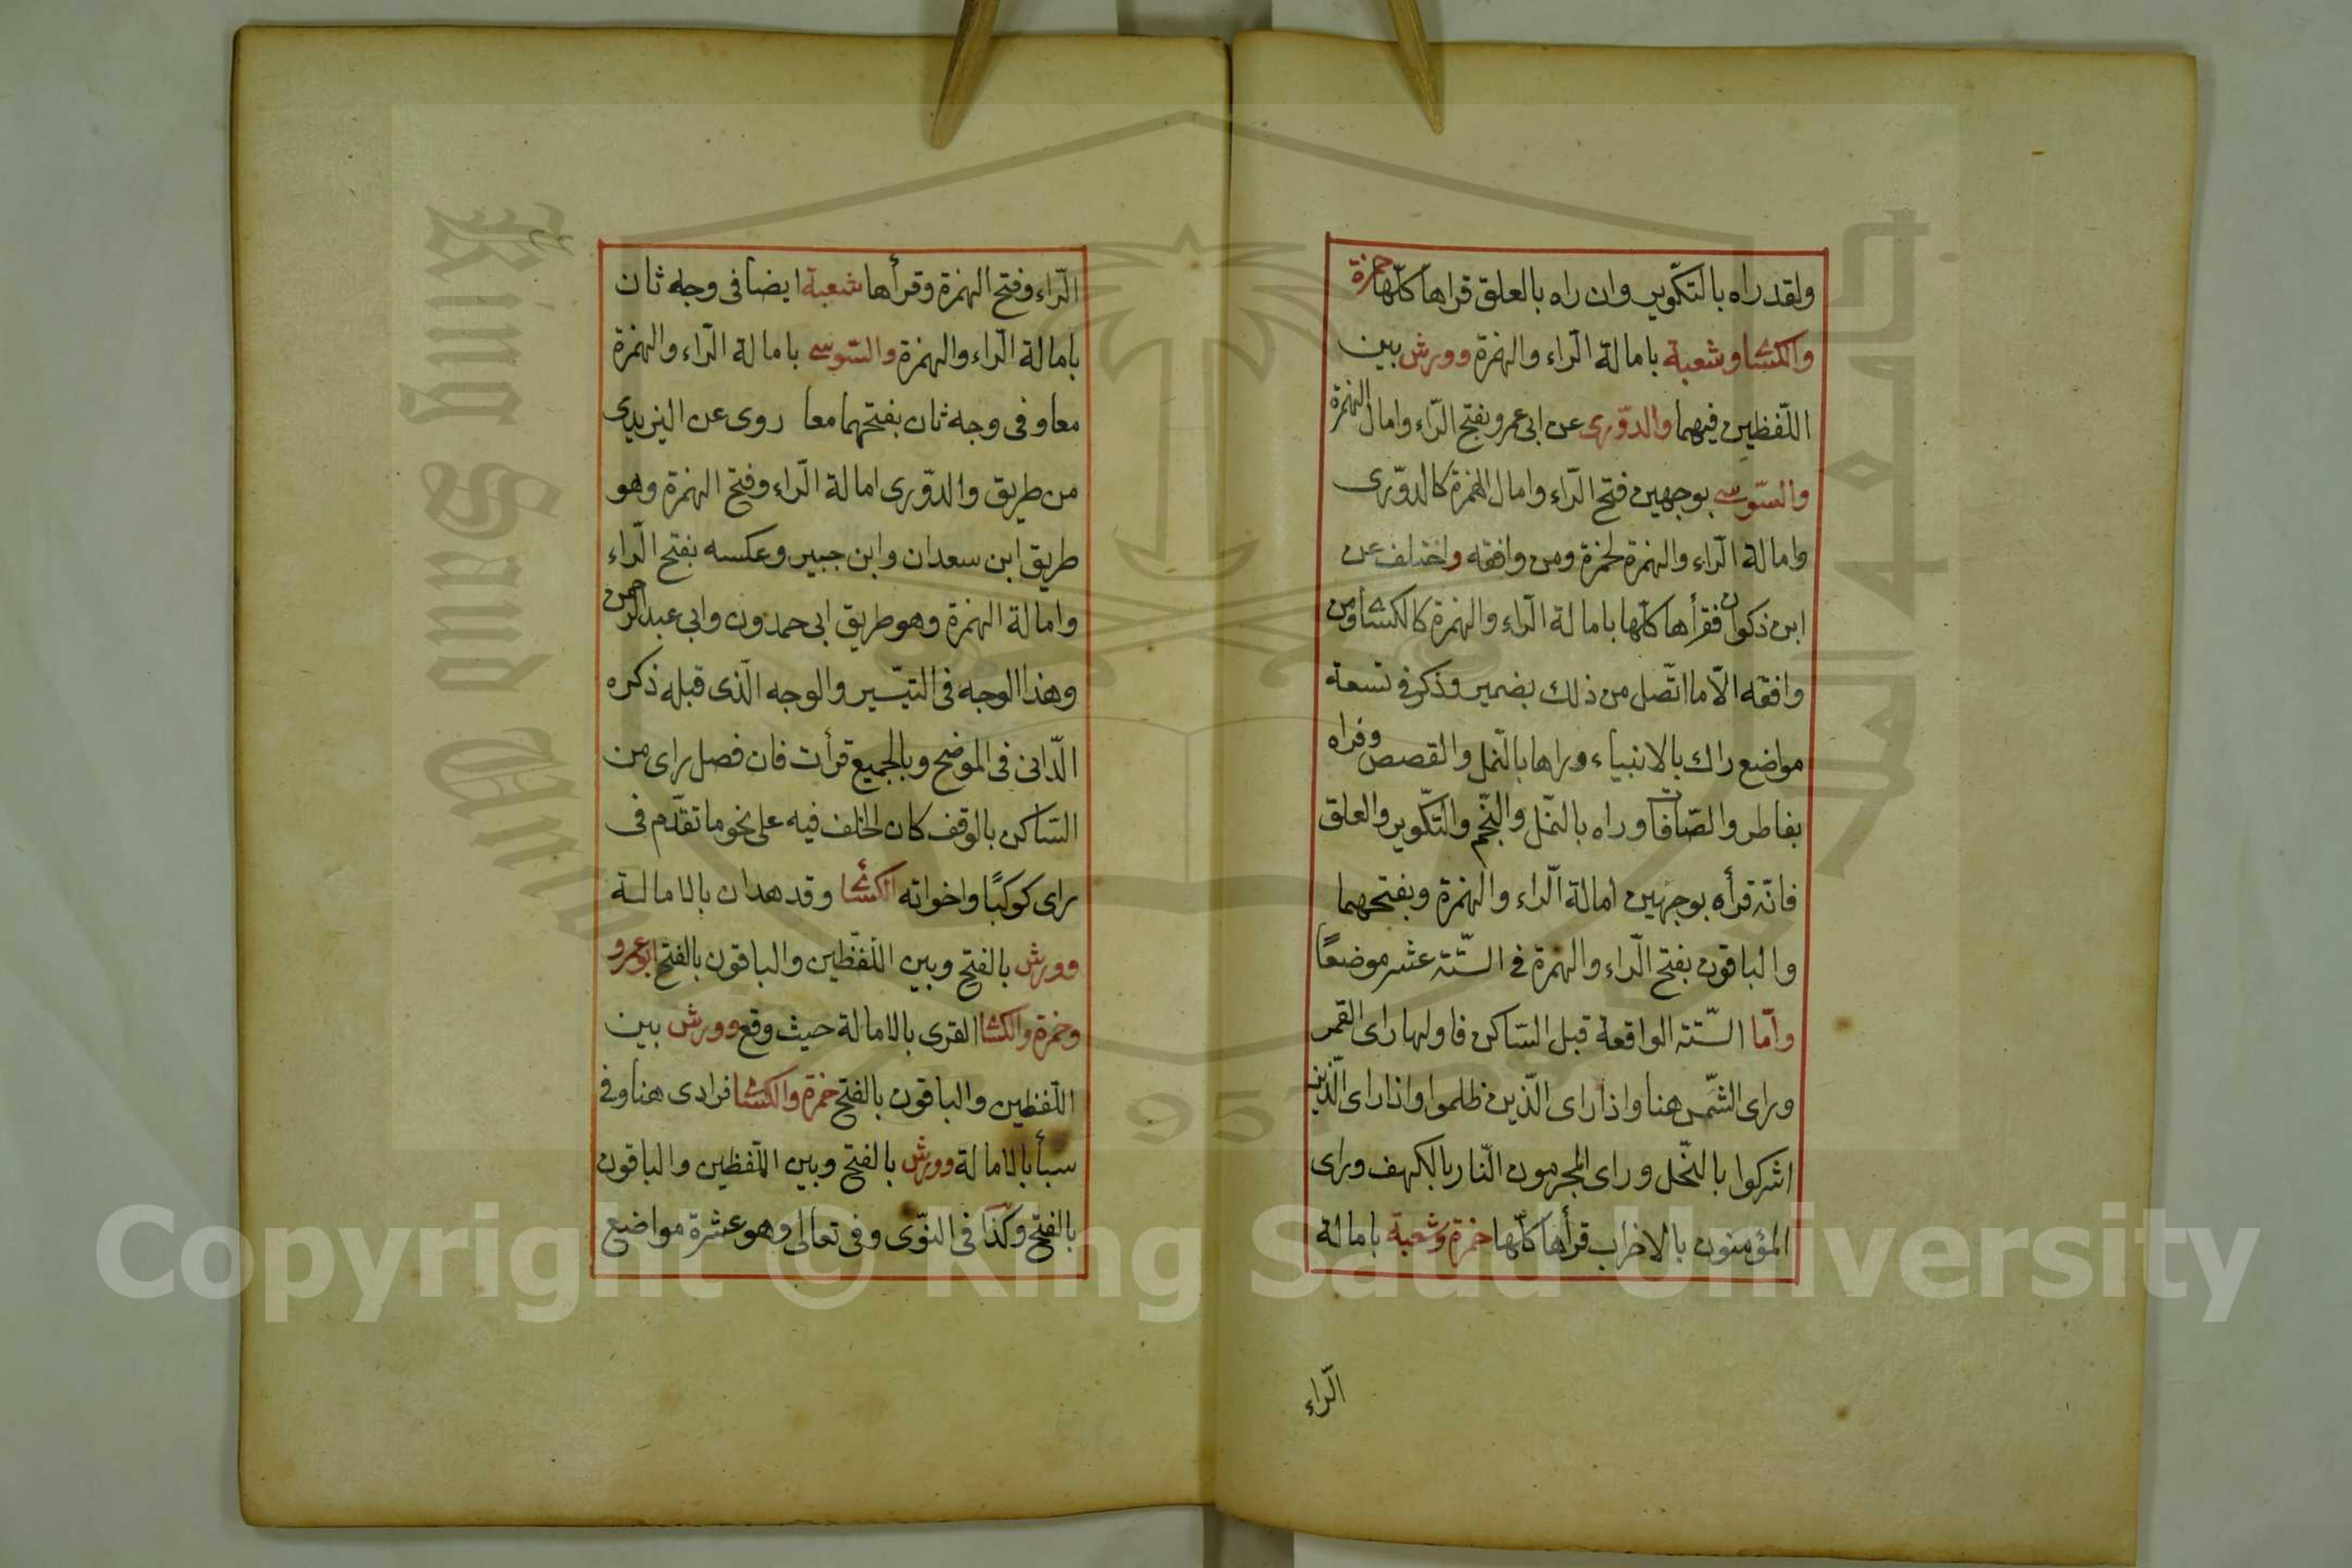 ولقد راه بالتكّوير وان راه بالعلق قراها كلّها حمزة
والكسائ وشعبة بامالة الرّاء والهمزة وورش بين
اللّفظين فيهما والدّورى عن ابى عمرو بفتح الرّاء وامال الهمزة
والسّوسى بوجهين فتح الرّاء وامال الهمزة كالدوّرى
وامالة الرّاء والهمزة لحمزة ومن وافقه واختلف عن
ابن ذكوان فقرأها كلّها بامالة الرّاء والهمزة كالكسائ ومن
وافقه الاّ ما اتّصل من ذلك بضمير وذكر فى تسعة
مواضع راك بالانبياء وراها بالنّمل والقصص وفراه
بفاطر والصّافات وراه بالنّمل والنّجم والتّكوير والعلق
فانّه قرأه بوجهين امالة الرّاء والهمزة وبفتحهما
والباقون بفتح الرّاء والهمزة فى السّتّة عشر موضعًا
وامّا السّتّة الواقعة قبل السّاكن فاولها راى القمر
وراى الشّمس هنا واذا راى الّذين ظلموا واذا راى الّذين
اشركوا بالنّحل وراى المجرمون النّار بالكهف وراى
المؤمنون بالاخراب قرأها كلّها حمزة وشعبة بامالة
الرّاء
الرّاء وفتح الهمزة وقرأها شعبة ايضا فى وجه ثان
بامالة الرّاء والهمزة والسّوسى بامالة الرّاء والهمزة
معا وفى وجه ثان بفتحهما معا روى عن اليزيدى
من طريق والدّورى امالة الرّاء وفتح الهمزة وهو
طريق ابن سعدان وابن جبير وعكسه بفتح الرّاء
وامالة الهمزة وهو طريق ابى حمدون وابى عبد الرحمن
وهذا الوجه فى التيّسير والوجه الّذى قبله ذكره
الدّانى فى الموضح وبالجميع قرأت فان فصل راى من
السّاكن بالوقف كان الخلف فيه على نحو ما تقدّم فى
راى كوكبًا واخواته الكسائ وقد هدان بالامالة
وورش بالفتح وبين اللّفظين والباقون بالفتح ابو عمرو
وحمزة والكسا القرى بالامالة حيث وقع وورش بين
اللّفظين والباقون بالفتح حمزة والكسائ فرادى هنا وفى
سبأ بالامالة وورش بالفتح وبين اللّفظين والباقون
بالفتح وكذا فى النّوى وفى تعالى وهو عشرة مواضع
King Saud University
1957
Copyright © King Saud University